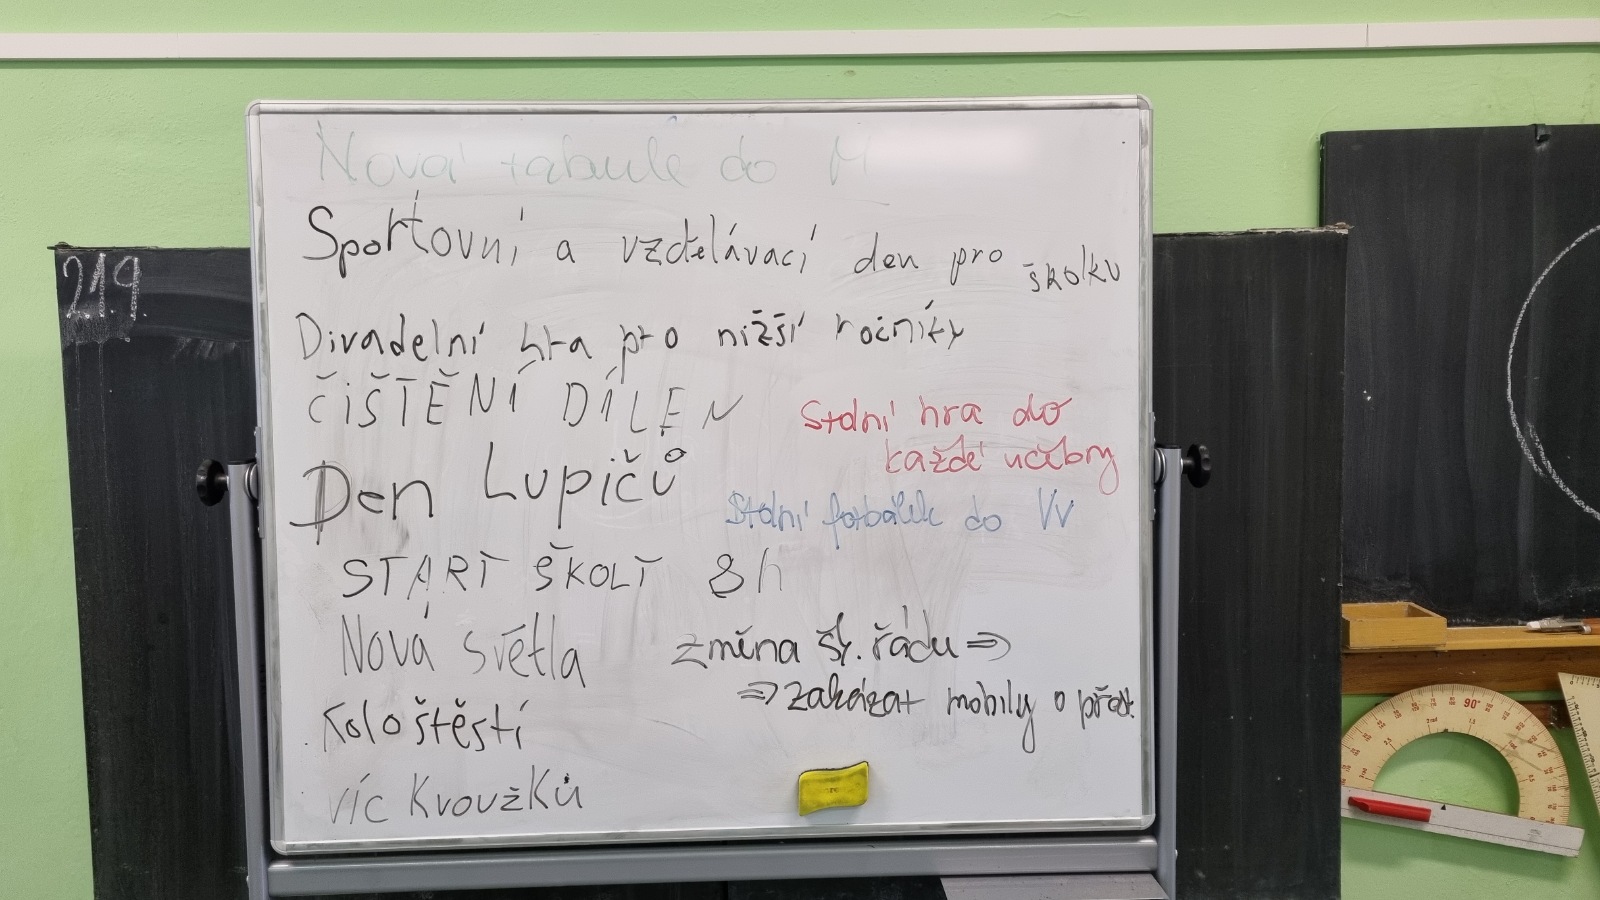 Nová tabule do M
21.9.
Sportovní a vzdělávací den pro školku
Divadelní hra pro nižší ročníky
ČIŠTĚNÍ DÍLEN
Stolní hra do
každé učebny
Den Lupičů
Stolní fotbálek do Vv
START ŠKOLY 8h
Nová světla
změna šk. řádu ⇒
⇒ zakázat mobily o přest.
Kolo štěstí
víc kroužků
90°